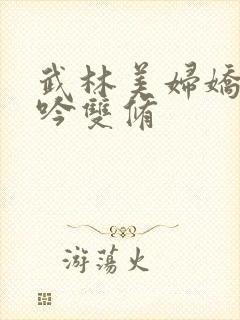 武林美婦嬌
吟雙脩
游蕩火